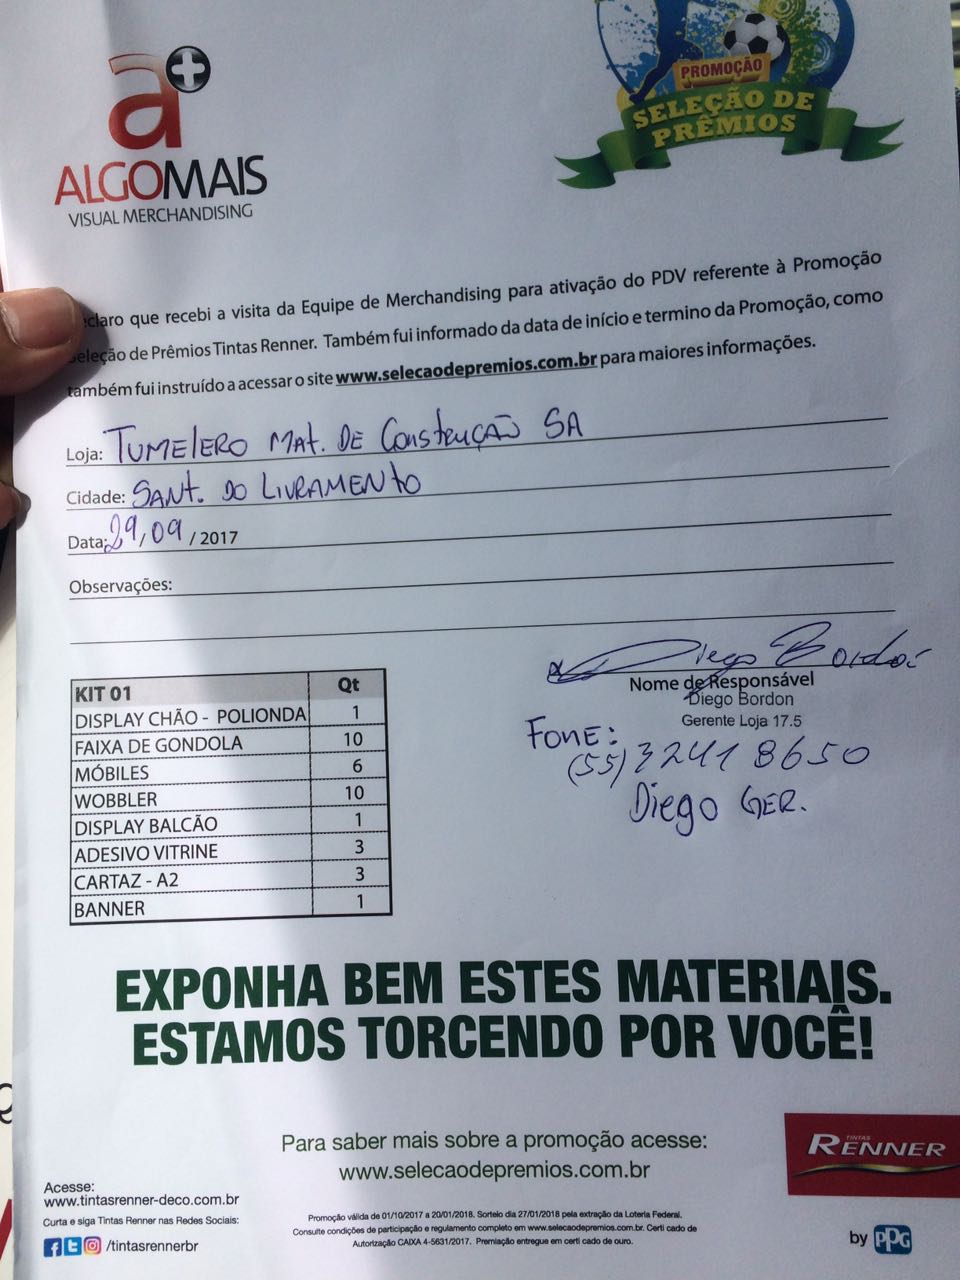 a+
ALGOMAIS
VISUAL MERCHANDISING
PROMOÇÃO
SELEÇÃO DE
PRÊMIOS
claro que recebi a visita da Equipe de Merchandising para ativação do PDV referente à Promoção
eleção de Prêmios Tintas Renner. Também fui informado da data de início e termino da Promoção, como
também fui instruído a acessar o site www.selecaodepremios.com.br para maiores informações.
Loja: TUMELERO MAT. DE CONSTRUÇÃO SA
Cidade: SANT. DO LIVRAMENTO
Data: 29/09 / 2017
Observações:
Diego Bordon
Nome de Responsável
Diego Bordon
Gerente Loja 17.5
FONE:
(55) 3241 8650
Diego GER.
KIT 01 Qt
DISPLAY CHÃO - POLIONDA 1
FAIXA DE GONDOLA 10
MÓBILES 6
WOBBLER 10
DISPLAY BALCÃO 1
ADESIVO VITRINE 3
CARTAZ - A2 3
BANNER 1
EXPONHA BEM ESTES MATERIAIS.
ESTAMOS TORCENDO POR VOCÊ!
Para saber mais sobre a promoção acesse:
www.selecaodepremios.com.br
TINTAS
RENNER
Acesse:
www.tintasrenner-deco.com.br
Curta e siga Tintas Renner nas Redes Sociais:
/tintasrennerbr
Promoção válida de 01/10/2017 a 20/01/2018. Sorteio dia 27/01/2018 pela extração da Loteria Federal.
Consulte condições de participação e regulamento completo em www.selecaodepremios.com.br. Certi cado de
Autorização CAIXA 4-5631/2017. Premiação entregue em certi cado de ouro.
by PPG